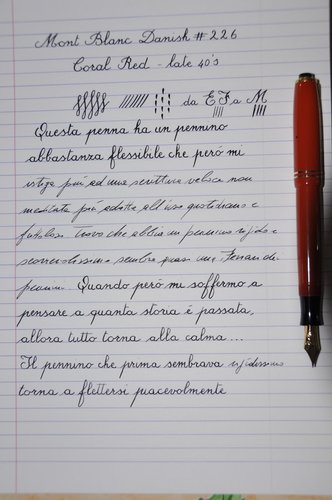 Mont Blanc Danish # 226
Coral Red - late 40's
da EF a M
Questa penna ha un pennino
abbastanza flessibile che però mi
istiga più ad una scrittura veloce non
meditata più adatta all'uso quotidiano e
Trovo che abbia un pennino rigido e
scorrevolissimo sembra quasi una Ferrari dei
pennini. Quando però mi soffermo a
pensare a quanta storia è passata,
allora tutto torna alla calma ...
Il pennino che prima sembrava rigidissimo
torna a flettersi piacevolmente